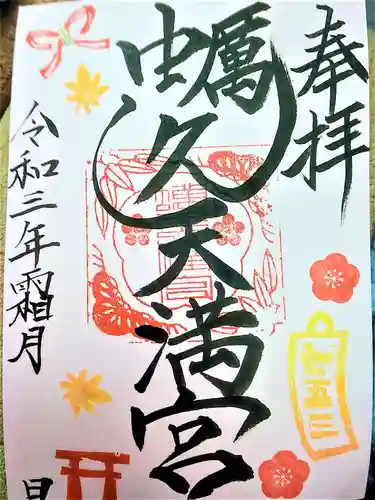 奉拝
蠣久天満宮
令和三年霜月
七五三